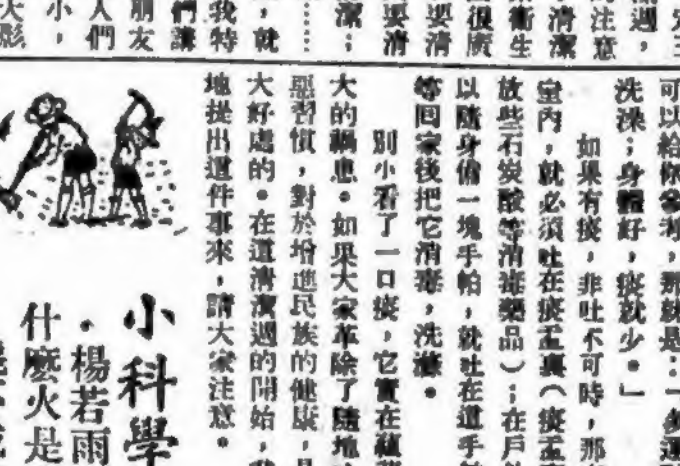 三
的注意
週，
清潔
衛生
很廣
要清
要清
潔；
……
，就
我特
們講
朋友
人們
小，
大影
可以給你參考，那就是：「多運
洗澡；身體好，痰就少。」
如果有痰，非吐不可時，那
室內，就必須吐在痰盂裏（痰盂
放些石炭酸等消毒藥品）；在戶
以隨身備一塊手帕，就吐在這手
等回家後把它消毒，洗滌。
別小看了一口痰，它實在蘊
大的禍患。如果大家革除了隨地
惡習慣，對於增進民族的健康，是
大好處的。在這清潔週的開始，我
地提出這件事來，請大家注意。
小科學
・楊若雨
什麼火是